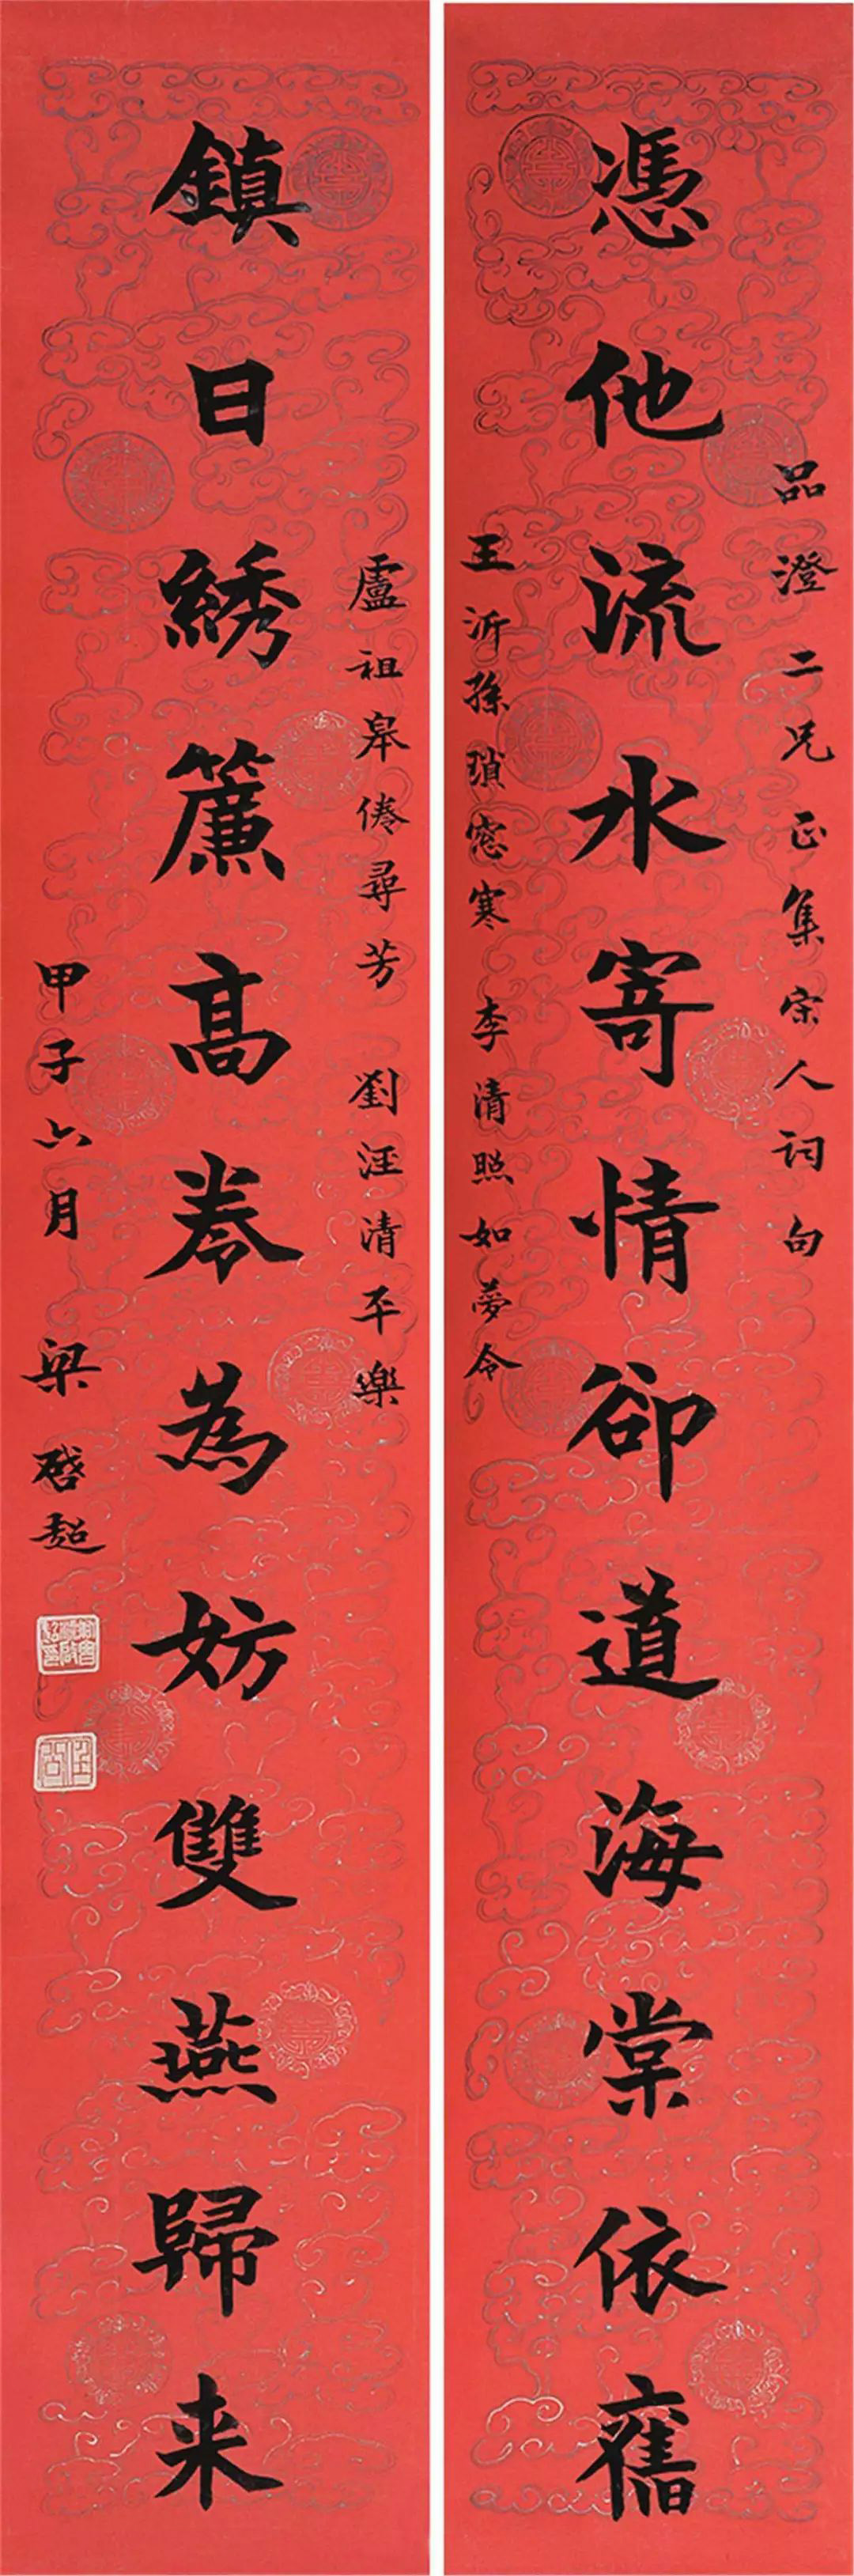 品澄二兄正集宋人詞句
憑他流水寄情卻道海棠依舊
王沂孫瑣窗寒 李清照如夢令
盧祖皋倦尋芳 劉汪清平樂
鎮日繡簾高卷為妨雙燕歸来
甲子六月 梁啓超